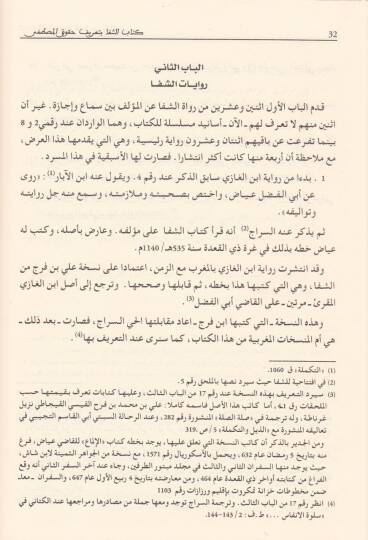 32
كتاب الشفا بتعريف حقوق المصطفى
الباب الثاني
روايات الشفا
قدم الباب الأول اثنين وعشرين من رواة الشفا عن المؤلف بين سماع وإجازة. غير أن
اثنين منهم لا تعرف لهم ـ الآن ـ أسانيد مسلسلة للكتاب، وهما الواردان عند رقمي 2 و 8
بينما تفرعت عن باقيهم اثنتان وعشرون رواية رئيسية، وهي التي يقدمها هذا العرض،
مع ملاحظة أن أربعة منها كانت أكثر انتشارا. فصارت لها الأسبقية في هذا المسرد.
1 . بدءا من رواية ابن الغازي سابق الذكر عند رقم 4. ويقول عنه ابن الأبار(1): «روى
عن أبي الفضل عياض، واختص بصحبته وملازمته، وسمع منه جل روايته
وتواليفه».
ثم يذكر عنه السراج(2) أنه قرأ كتاب الشفا على مؤلفه. وعارض بأصله، وكتب له
عياض خطه بذلك في غرة ذي القعدة سنة 535هـ/1140م.
وقد انتشرت رواية ابن الغازي بالمغرب مع الزمن، اعتمادا على نسخة علي بن فرج من
الشفا، وهي التي كتبها هذا بخطه، ثم قابلها وصححها. وترجع إلى أصل ابن الغازي
المقرئ ـ مرتين ـ على القاضي أبي الفضل(3).
وهذه النسخة ـ التي كتبها ابن فرج ـ اعاد مقابلتها الحي السراج، فصارت ـ بعد ذلك ـ
هي أم المنسخات المغربية من هذا الكتاب، كما سنرى عند التعريف بها(4).
(1) «التكملة» ق 1060.
(2) في افتتاحية للشفا حيث سيرد نصها بالملحق رقم 5.
(3) سيرد التعريف بهذه النسخة عند رقم 17 من الباب الثالث، وعليها كتابات تعرف بقيمتها حسب
الملحقات رق 4،1. أما كاتب هذا الأصل فاسمه كاملا: علي بن محمد بن فرج القيسي القيجاطي نزيل
غرناطة، وله ترجمة في «صلة الصلة» المنشورة رقم 282، وعند الرحالة السبتي أبي القاسم التجيبي في
تعاليقه المنشورة مع «الذيل والتكملة» 5/ ص 319.
ومن الجدير بالذكر أن كاتب النسخة التي نعلق عليها، يوجد بخطه كتاب «الإلماع» للقاضي عياض، فرغ
منه بتاريخ 5 رمضان عام 632، ويحمل بالأسكوريال رقم 1571، مع نسخة من الجواهر الثمينة لابن شاش،
حيث يوجد منها السفران الثاني والثالث في مجلد مبتور الطرفين، وجاء عند آخر السفر الثاني أنه وقع
الفراغ من كتابته أواخر ذي القعدة عام 464، ومن معارضته بتاريخ 4 ربيع الأول عام 647، والسفران ـ معا ـ
ضمن مخطوطات خزانة تمكروت بإقليم ورزازات رقم 1103
(4) انظر رقم 17 من الباب الثالث. وترجمة السراج توجد ومعها جملة من مصادرها ومراجعها عند الكتاني في
«سلوة الانفاس ...» ط. ف: 2 /143–144.